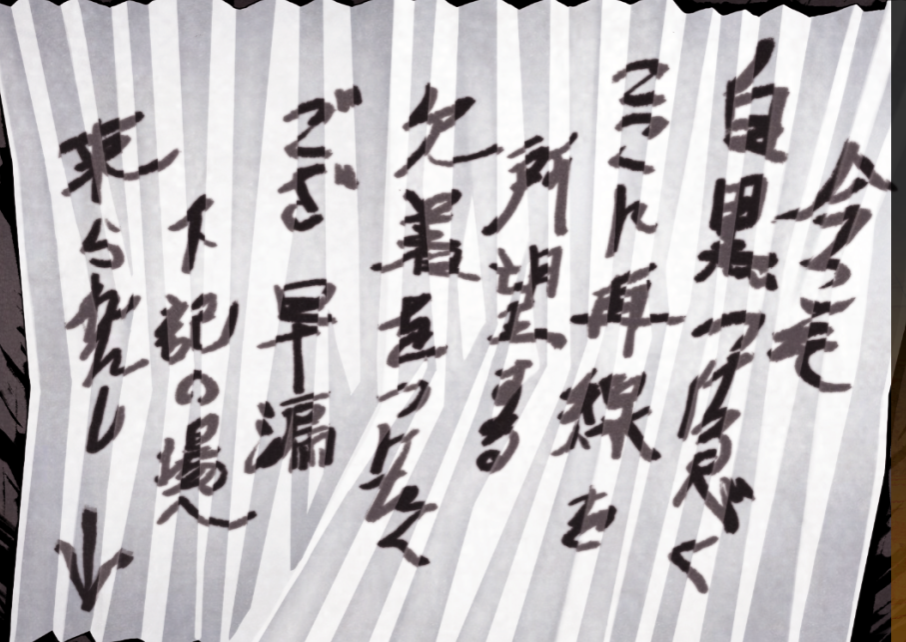 今こそ
白黒つけるべく
ここに再戦を
所望する
欠着をつけんく
ござ 早漏
下記の場へ
来られんし
↓